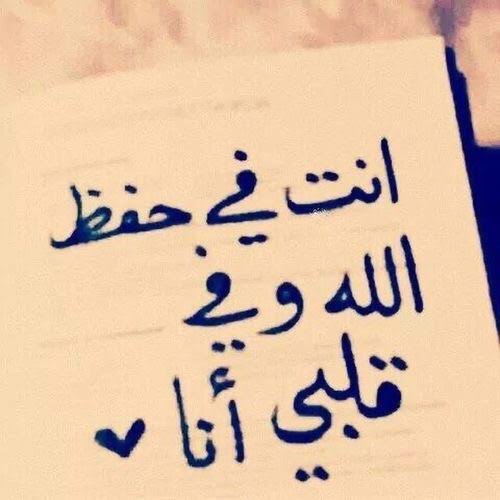 انت في حفظ
الله وفي
قلبي أنا